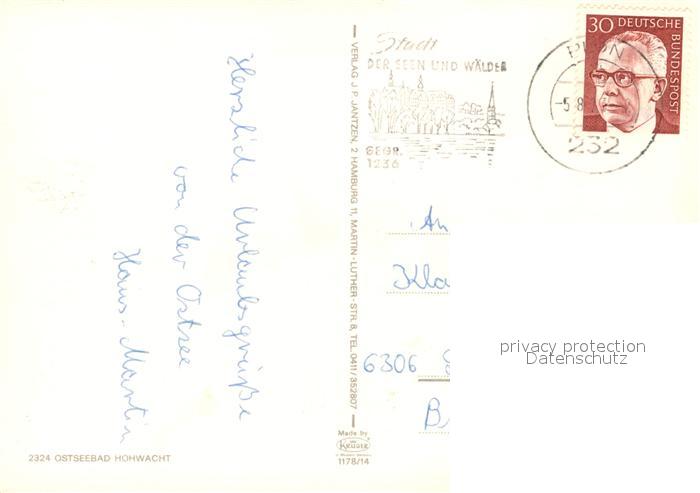 Herzliche Urlaubsgrüße
von der Ostsee
Hans-Martin
2324 OSTSEEBAD HOHWACHT
VERLAG J. P. JANTZEN, 2 HAMBURG 11, MARTIN-LUTHER-STR. 8, TEL. 0411/352807
Made by
KRÜGER
1178/14
Stadt
DER SEEN UND WÄLDER
GEGR.
1236
PLÖN
-5.8.
232
30 DEUTSCHE
BUNDESPOST
An
Kla
6306
B
privacy protection
Datenschutz